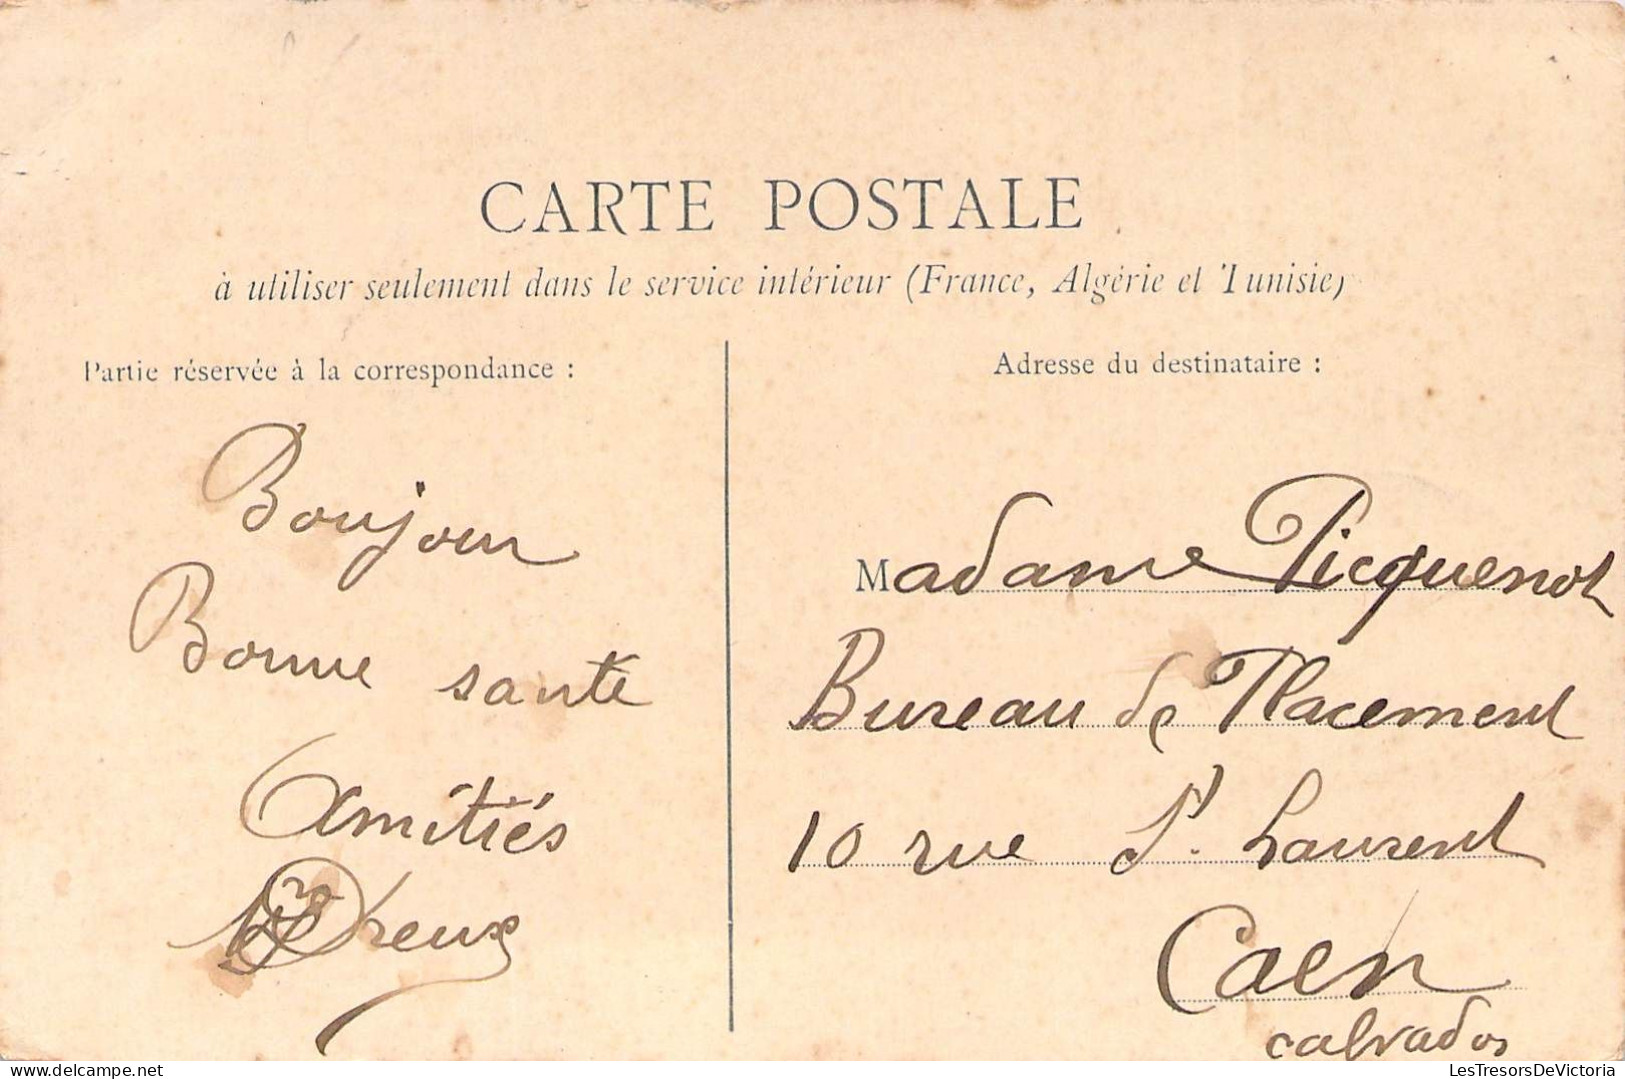 CARTE POSTALE
à utiliser seulement dans le service intérieur (France, Algérie et Tunisie)
Partie réservée à la correspondance :
Bonjour
Bonne santé
Amitiés
Adresse du destinataire :
Madame Picquenot
Bureau de Placement
10 rue St. Laurent
Caen
Calvados
LesTresorsDeVictoria